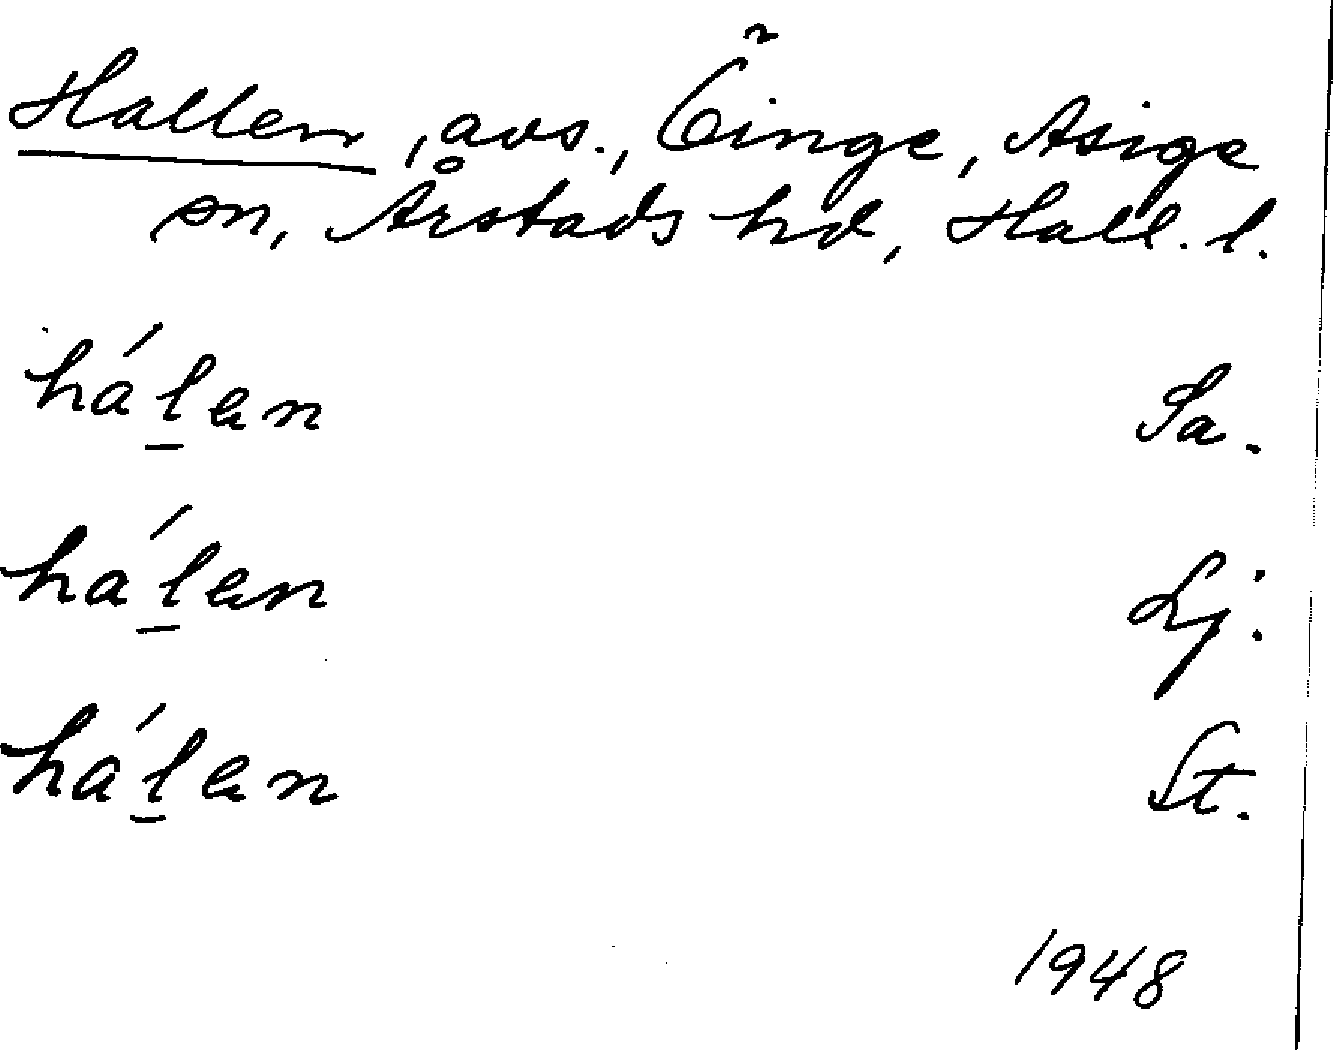 Hallen, avs., Öinge, Asige
sn, Årstads hd, Hall. l.
há́l̲en Sa.
há́l̲en Lj.
há́l̲en St.
1948